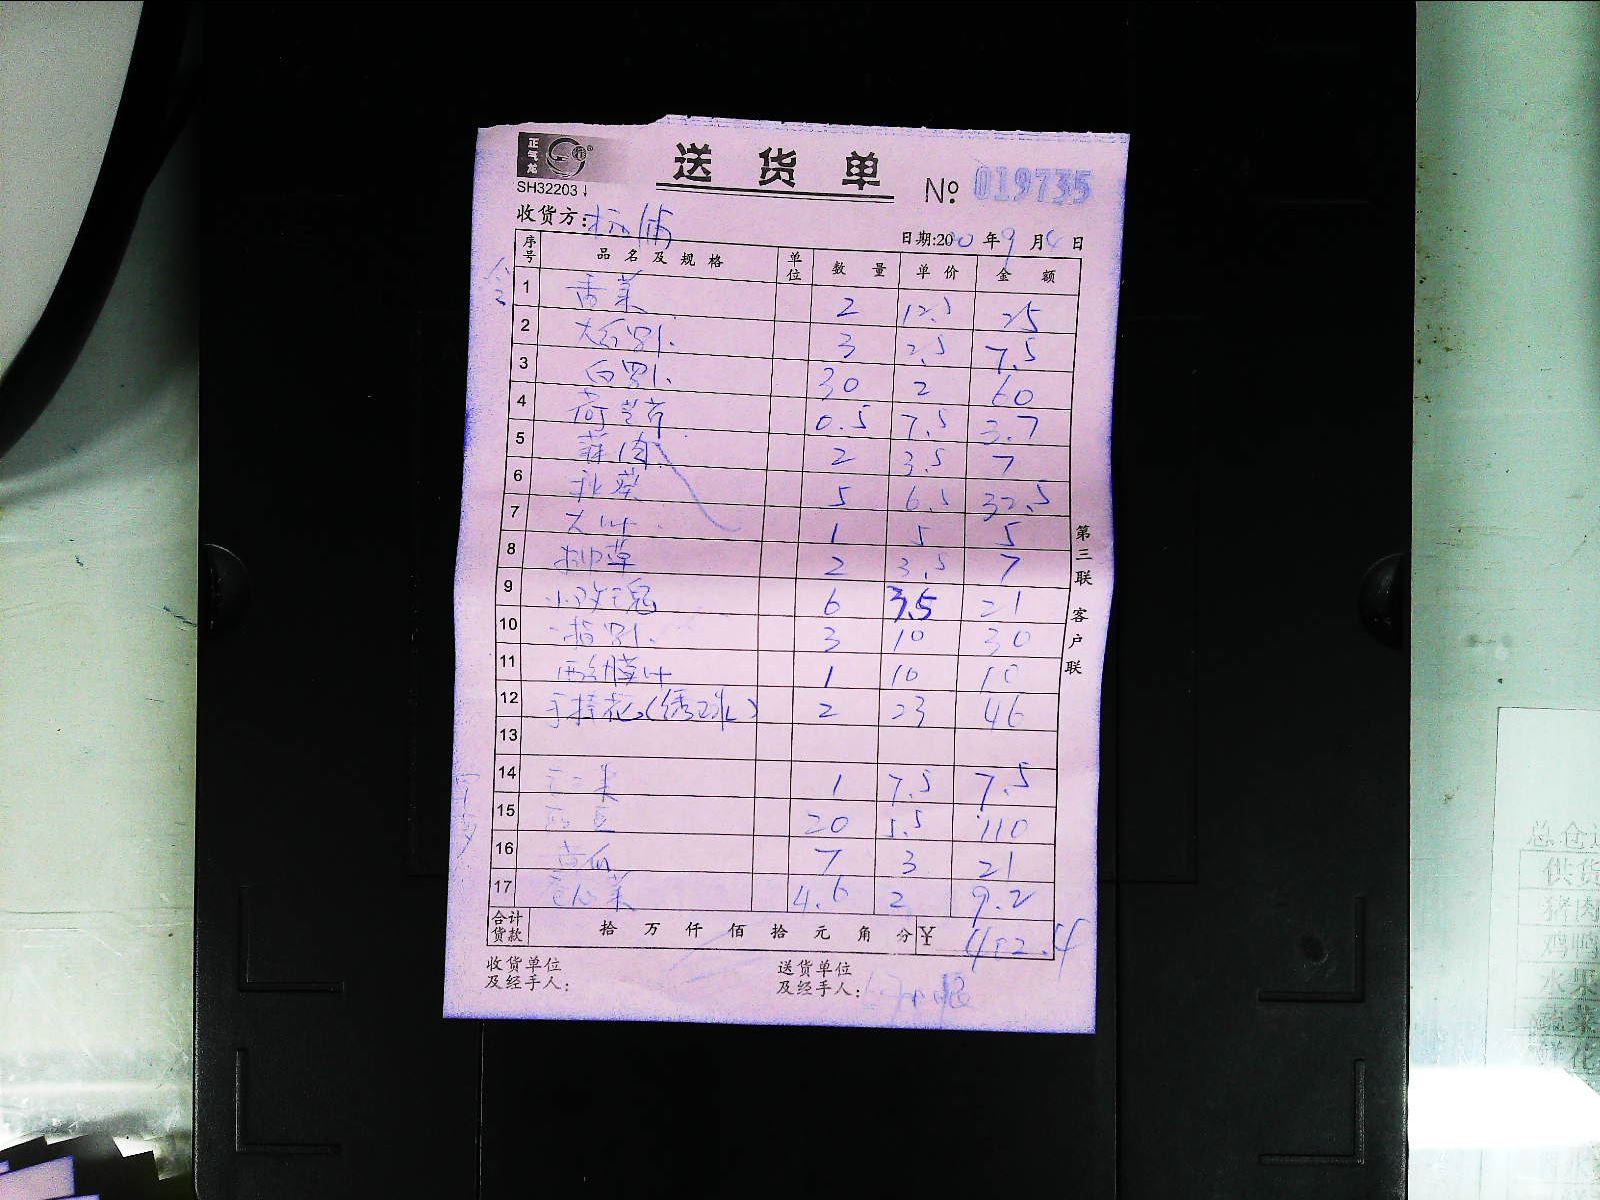 正气龙
送货单
SH32203
No. 019735
收货方: 杨浦
日期:2020年9月4日
序号 品名及规格 单位 数量 单价 金额
1 香菜 2 12.5 25
2 大红椒 3 2.5 7.5
3 白 30 2 60
4 荷兰芹 0.5 7.5 3.7
5 蒜肉 2 3.5 7
6 秋葵 5 6.5 32.5
7 大叶 1 5 5
8 柳草 2 3.5 7
9 小玫瑰 6 3.5 21
10 3 10 30
11 叶 1 10 10
12 手捧花(绣球) 2 23 46
13
14 1 7.5 7.5
15 豆 20 5.5 110
16 黄瓜 7 3 21
17 菜 4.6 2 9.2
合计货款 拾 万 仟 佰 拾 元 角 分 ¥ 402.4
收货单位及经手人:
送货单位及经手人:
第三联 客户联
总仓
供货
猪肉
鸡鸭
水果
蔬菜
鲜花